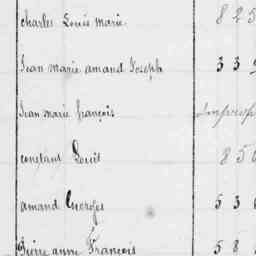 Charles Louis marie 825
Jean marie amand Joseph 33
Jean marie françois
constant Louis 850
amand Georges 53
Pierre anne François 58